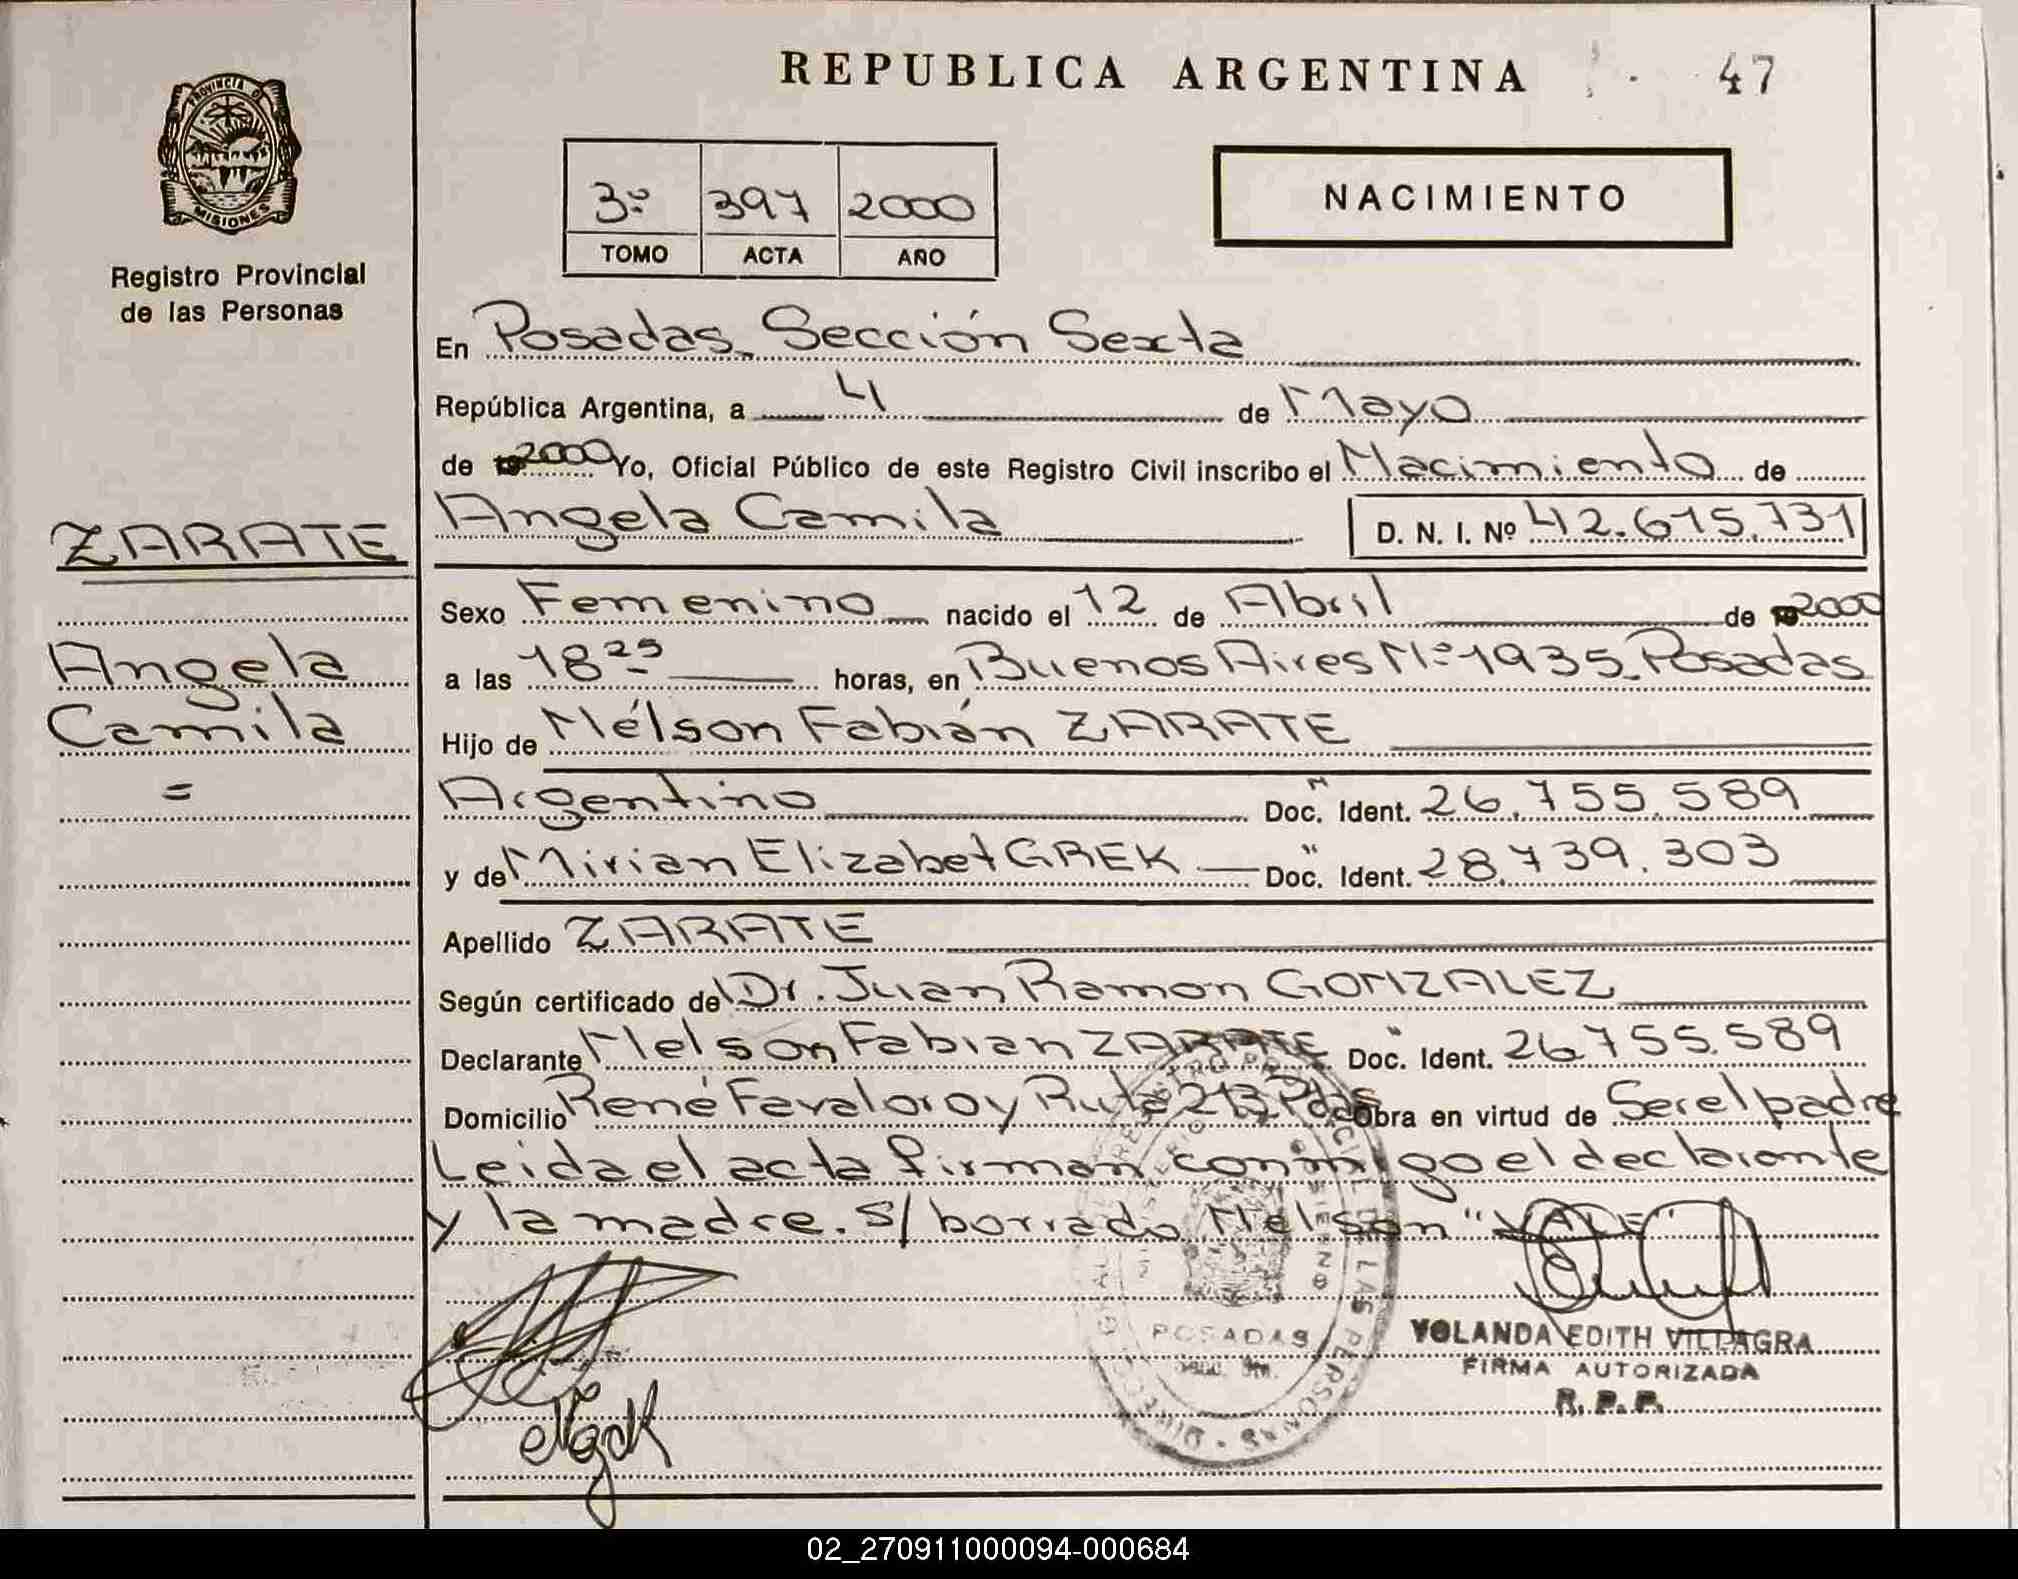 REPUBLICA ARGENTINA 47
PROVINCIA D
MISIONES
Registro Provincial
de las Personas
3º 397 2000
TOMO ACTA AÑO
NACIMIENTO
En Posadas Sección Sexta
República Argentina, a 4 de Mayo
de 2000 Yo, Oficial Público de este Registro Civil inscribo el Nacimiento de
ZARATE
Angela Camila D. N. I. Nº 42.615.731
Sexo Femenino nacido el 12 de Abril de 2000
Angela
Camila
=
a las 18 25 horas, en Buenos Aires Nº 1935 Posadas
Hijo de Nélson Fabián ZARATE
Argentino Doc. Ident. 26.755.589
y de Mirian Elizabet GREK Doc. Ident. 28.739.303
Apellido ZARATE
Según certificado de Dr. Juan Ramon GONZALEZ
Declarante Nelson Fabian ZARATE Doc. Ident. 26.755.589
Domicilio René Favaloro y Ruta 213 Pdas Obra en virtud de Ser el padre
Leida el acta firman conmigo el declarante
y la madre. S/ borrado Nelson" VALE"
POSADAS
YOLANDA EDITH VILLAGRA
FIRMA AUTORIZADA
R. P. P.
02_270911000094-000684